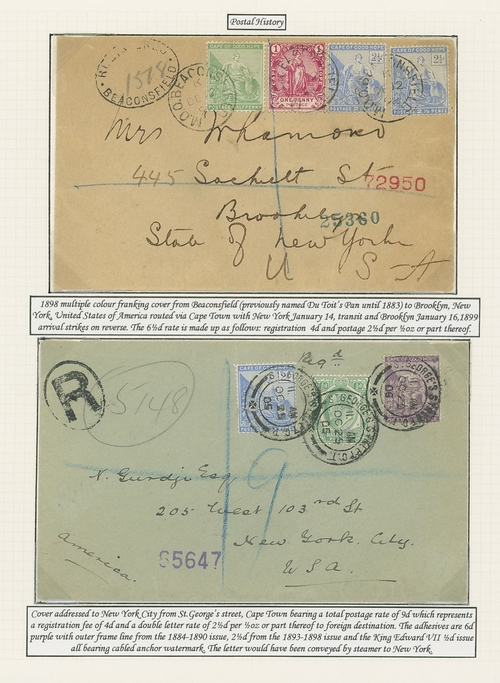 Postal History
BEACONSFIELD
1518
M.O.O. BEACONSFIELD
CAPE OF GOOD HOPE
CAPE OF GOOD HOPE
CAPE OF GOOD HOPE
ONE PENNY
2½
2½
Mrs Whamond
445 Sackett St
72950
Brooklyn
25360
State of New Yorke
U S A
1898 multiple colour franking cover from Beaconsfield (previously named Du Toit's Pan until 1883) to Brooklyn, New
York, United States of America routed via Cape Town with New York January 14, transit and Brooklyn January 16,1899
arrival strikes on reverse. The 6½d rate is made up as follows: registration 4d and postage 2½d per ½oz or part thereof.
Regd
R
5148
ST.GEORGE'S ST
OC 25
05
ST.GEORGE'S ST
OC 25
05
ST.GEORGE'S ST
OC 25
05
9
N. Gurdji Esq
205 West 103rd St
New York. City.
America.
65647
U.S.A.
Cover addressed to New York City from St.George's street, Cape Town bearing a total postage rate of 9d which represents
a registration fee of 4d and a double letter rate of 2½d per ½oz or part thereof to foreign destination. The adhesives are 6d
purple with outer frame line from the 1884-1890 issue, 2½d from the 1893-1898 issue and the King Edward VII ½d issue
all bearing cabled anchor watermark. The letter would have been conveyed by steamer to New York.